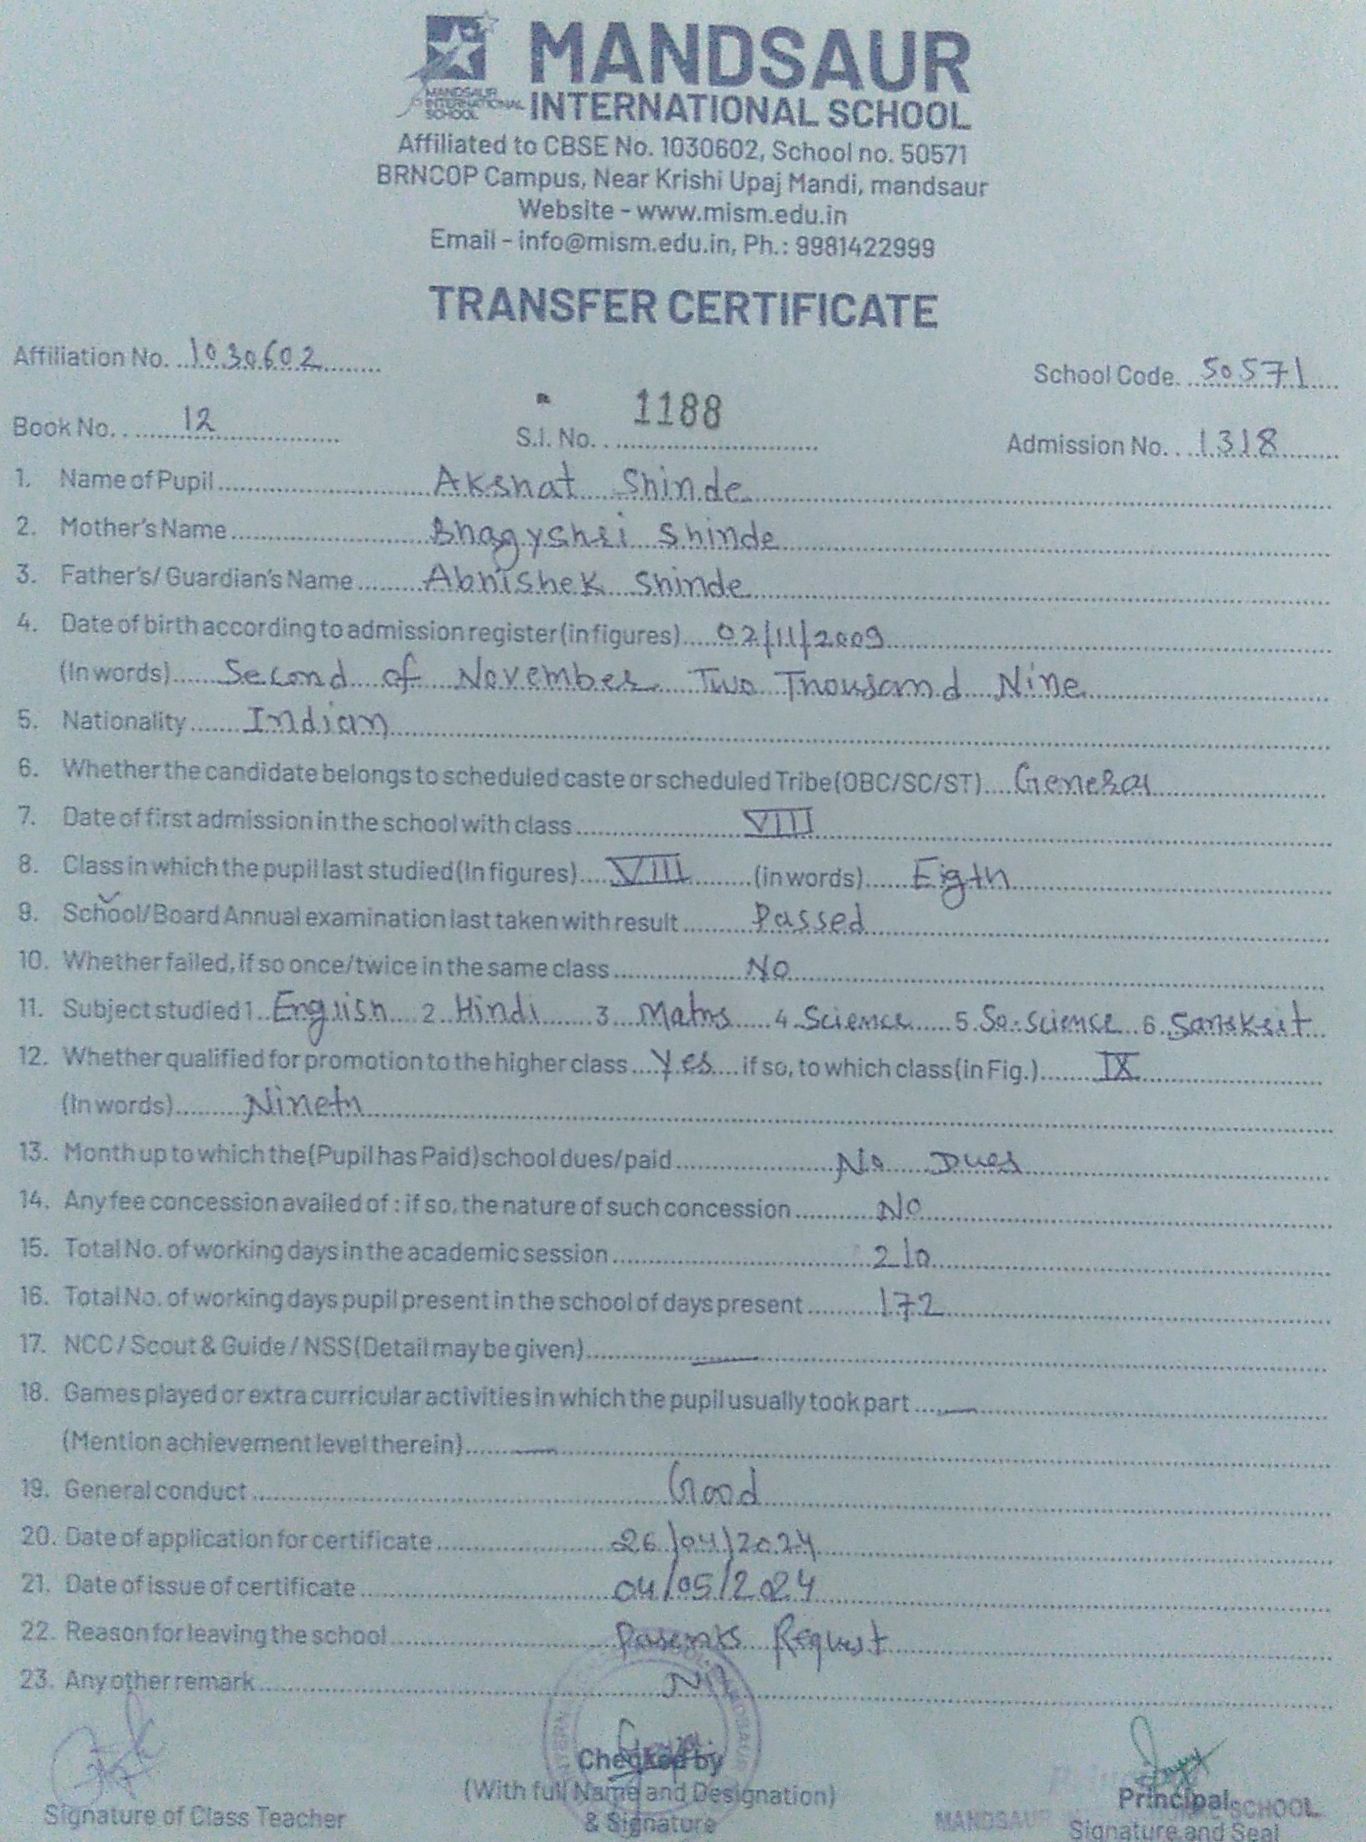 MANDSAUR
INTERNATIONAL SCHOOL
MANDSAUR
INTERNATIONAL
SCHOOL
Affiliated to CBSE No. 1030602, School no. 50571
BRNCOP Campus, Near Krishi Upaj Mandi, mandsaur
Website - www.mism.edu.in
Email - info@mism.edu.in, Ph.: 9981422999
TRANSFER CERTIFICATE
Affiliation No. 1030602 School Code. 50571
Book No. 12 S.I. No. 1188 Admission No. 1318
1. Name of Pupil Akshat Shinde
2. Mother's Name Bhagyshri Shinde
3. Father's/ Guardian's Name Abhishek Shinde
4. Date of birth according to admission register (in figures) 02/11/2009
(In words) Second of November Two Thousand Nine
5. Nationality Indian
6. Whether the candidate belongs to scheduled caste or scheduled Tribe (OBC/SC/ST) General
7. Date of first admission in the school with class VIII
8. Class in which the pupil last studied (In figures) VIII (in words) Eigth
9. School/Board Annual examination last taken with result Passed
10. Whether failed, if so once/twice in the same class No
11. Subject studied 1 English 2 Hindi 3 Maths 4 Science 5 So. science 6 Sanskrit
12. Whether qualified for promotion to the higher class Yes if so, to which class (in Fig.) IX
(In words) Nineth
13. Month up to which the (Pupil has Paid) school dues/paid No Dues
14. Any fee concession availed of : if so, the nature of such concession No
15. Total No. of working days in the academic session 210
16. Total No. of working days pupil present in the school of days present 172
17. NCC / Scout & Guide / NSS (Detail may be given) —
18. Games played or extra curricular activities in which the pupil usually took part —
(Mention achievement level therein) —
19. General conduct Good
20. Date of application for certificate 26/04/2024
21. Date of issue of certificate 04/05/2024
22. Reason for leaving the school Parents Request
23. Any other remark Nil
Signature of Class Teacher
Checked by
(With full Name and Designation)
& Signature
Principal
MANDSAUR SCHOOL
Signature and Seal